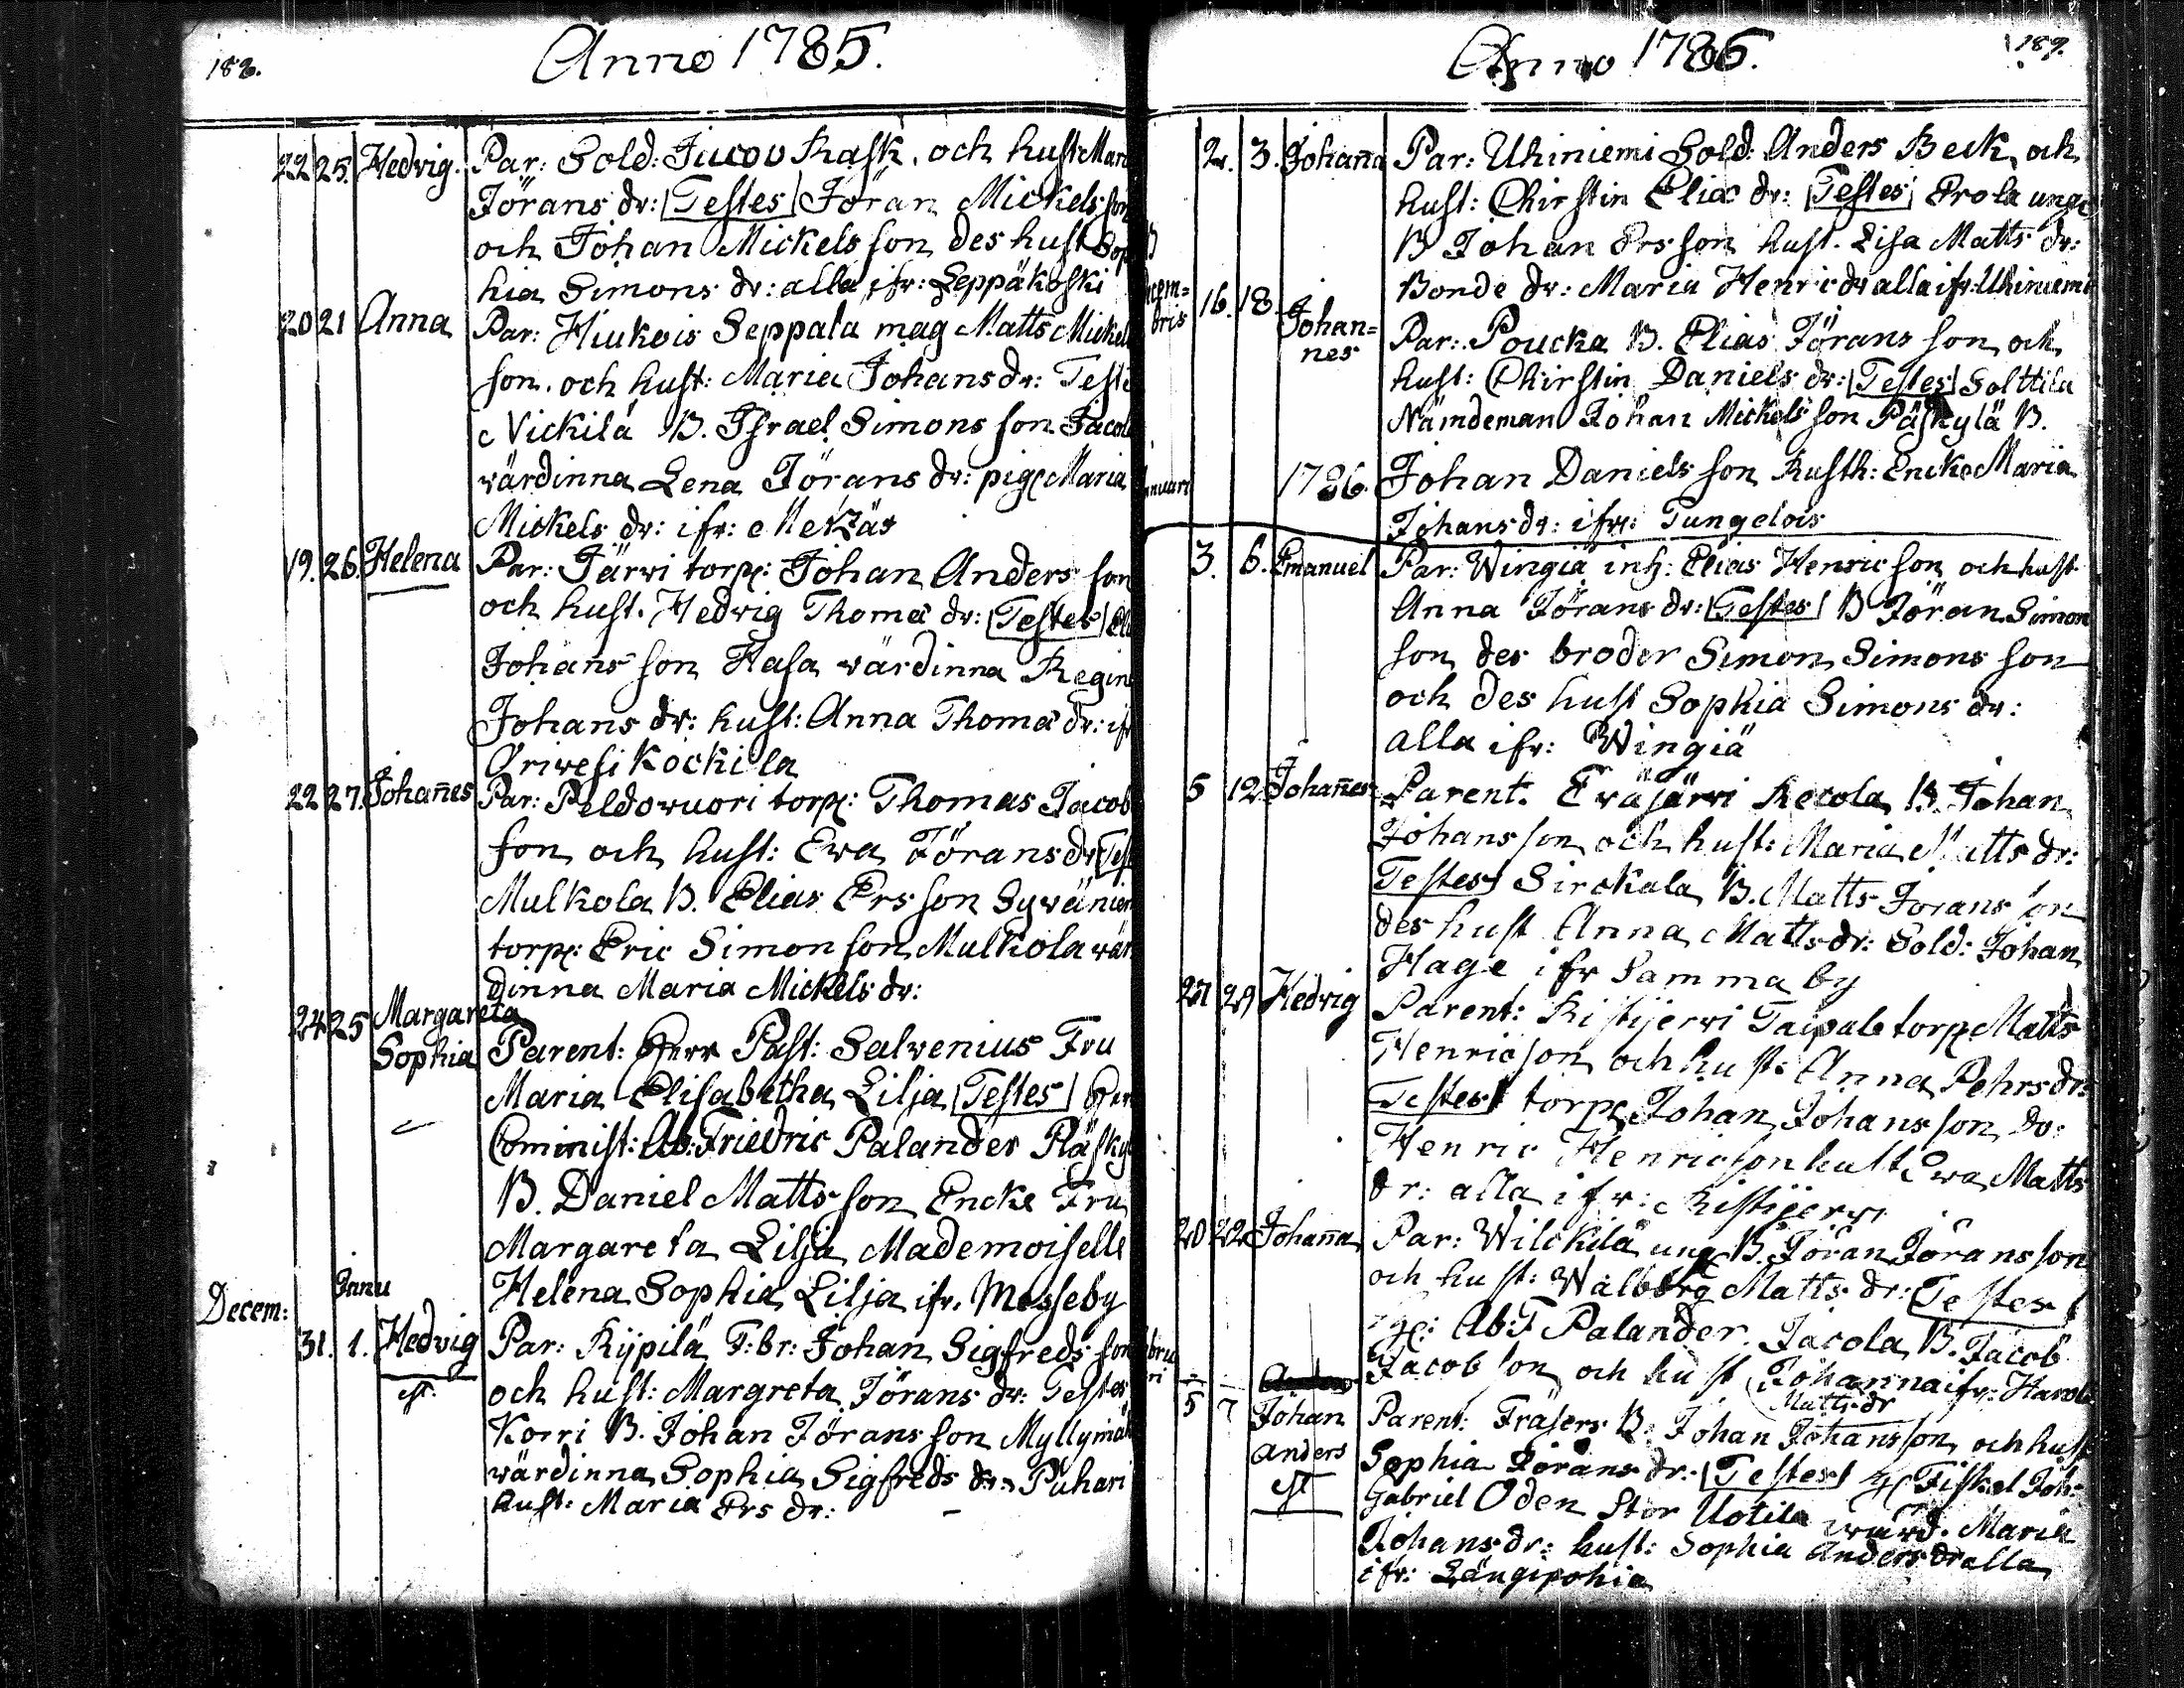 188.
Anno 1785.
22 25. Hedvig. Par: Sold: Jacob Rask. och hust Mar
Jörans dr: Testes Jöran Mickels son
och Johan Mickels son des hust Sop
hia Simons dr: alla ifr: Seppäkoski
20 21 Anna Par: Hiukois Seppala mag Matts Mickel
son. och hust: Maria Johans dr: Teste
Nickilä B. Israel Simons son Jacol
wärdinna Lena Jörans dr: pig Maria
Mickels dr: ifr:
19. 26. Helena Par: Järvi torp: Johan Anders son
och hust. Hedvig Thomæ dr: Testes
Johans son Hasa wärdinna Regin
Johans dr: hust: Anna Thomæ dr: if
Oriwesi Kockila
22 27. Johañes Par: Peldowuori torp: Thomas Jacob
son och hust: Ewa Jörans dr Tes
Mulkola B. Elias Ers son Sywänien
torp: Eric Simon son Mulkola wär
dinna Maria Mickels dr:
24 25 Margareta
Sophia Parent: Herr Past: Salvenius Fru
Maria Elisabetha Lilja Testes Her
Cominist: Ab: Friedric Palander Päsky
B. Daniel Matts son Encke Fru
Margareta Lilja Mademoiselle
Janu Helena Sophia Lilja ifr. Messeby
Decem:
31. 1. Hedvig Par: Kypilä T: br: Johan Sigfreds son
och hust: Margreta Jörans dr: Testes
Korri B. Johan Jörans son Myllymä
wärdinna Sophia Sigfreds dr: Puhari
hust: Maria Ers dr:
Anno 1786.
189.
2. 3. Johaña Par: Uhiniemi Sold: Anders Beck och
hust: Christin Eliæ dr: Testes Erola unge
B Johan Ers son hust. Lisa Matts dr:
Bonde dr: Maria Henric dr alla ifr: Uhiniemi
16. 18. Johan=
nes Par: Poucka B. Elias Jörans son och
hust: Christin Daniels dr: Testes Solttila
Nämdeman Johan Mickels son Päskylä B.
1786. Johan Daniels son Rusth: Encke Maria
Johans dr: ifr: Pungelois
3. 6. Emanuel Par: Wingiä inh: Elias Henric son och hust
Anna Jörans dr: Testes B Jöran Simon
son des broder Simon Simons son
och des hust Sophia Simons dr:
alla ifr: Wingiä
5 12. Johañes Parent. Eräjärwi Recola B. Johan
Johans son och hust: Maria Matts dr:
Testes Sirckala B. Matts Jorans son
des hust Anna Matts dr: Sold: Johan
Hage ifr Sammaby
27 29 Hedvig Parent: Ristijerwi Taipale torp Matts
Henric son och hust: Anna Pehrs dr:
Testes torp Johan Johans son Do:
Henric Henricson hust Ewa Matts
dr: alla ifr: Ristijerwi
20 22 Johaña Par: Wilckilä ung B. Jöran Jörans son
och hust: Walborg Matts dr: Testes
Ab: F Palander Jacola B. Jacob
Jacob son och hust Johanna ifr: Harola
Matts dr
5 7 Johan Parent: Frasers B: Johan Johansson och hust
Anders Sophia Jörans dr: Testes Fiskal Joh:
Gabriel Oden Stor Uotila wärd. Maria
Johans dr: hust: Sophia Anders dr alla
ifr: Längipohia